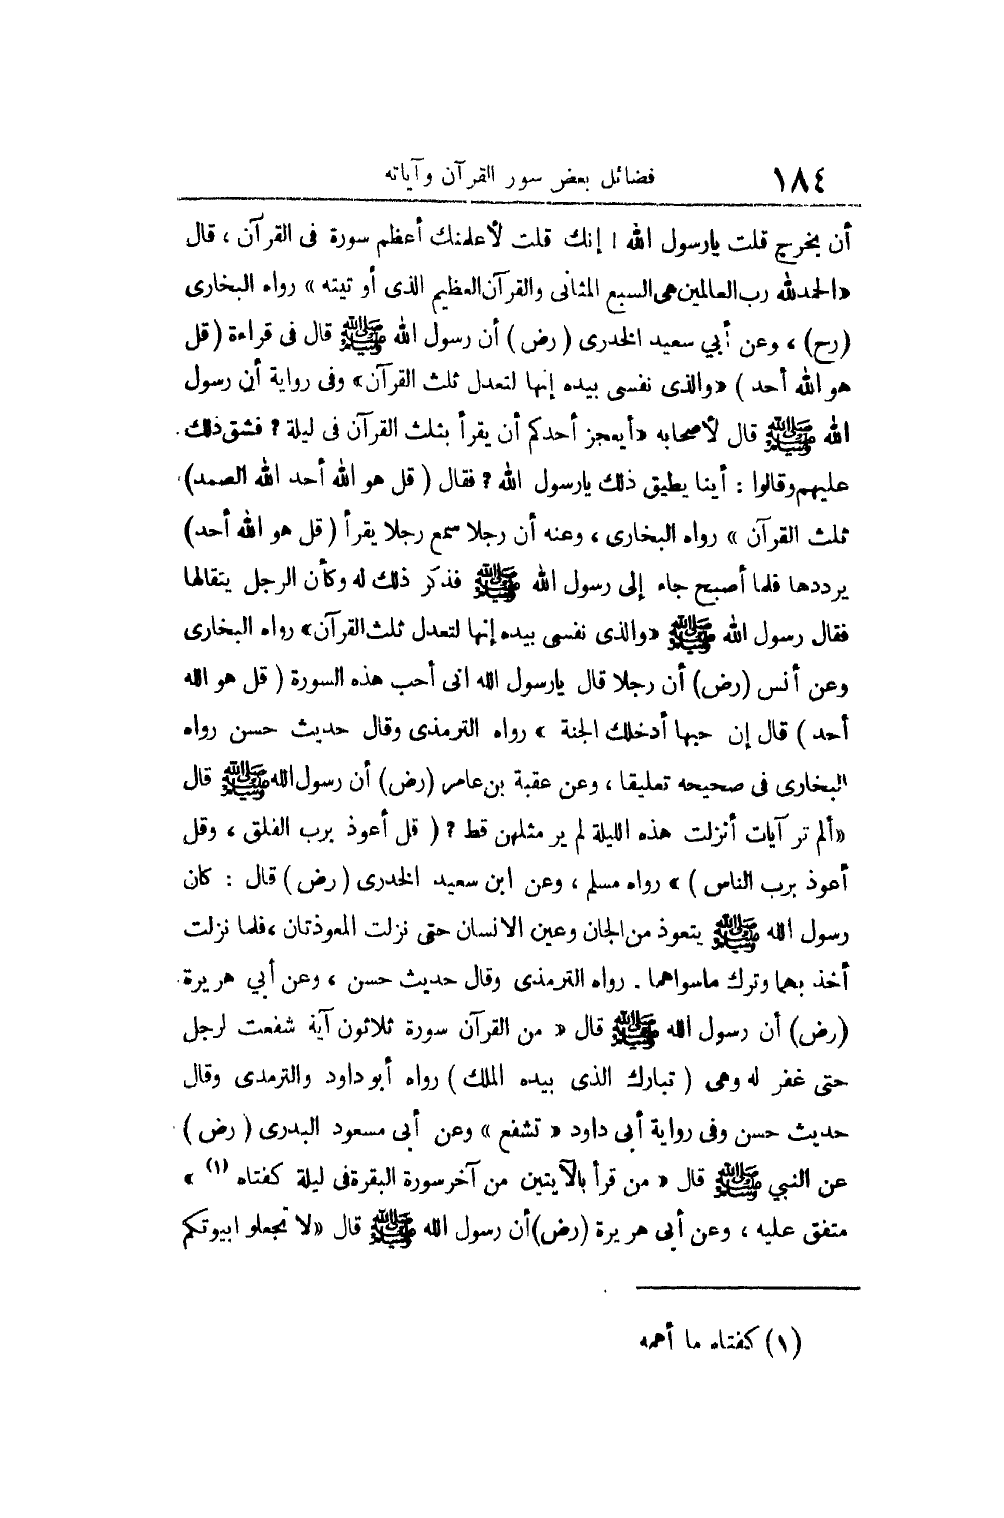 ١٨٤ فضائل بعض سور القرآن وآياته
أن يخرج قلت يارسول الله ! إنك قلت لأعلمنك أعظم سورة فى القرآن ، قال
«الحمد لله رب العالمين هى السبع المثانى والقرآن العظيم الذى أو تيته » رواه البخارى
(رح) ، وعن أبي سعيد الخدرى ( رض ) أن رسول الله ﷺ قال فى قراءة ( قل
هو الله أحد ) «والذى نفسى بيده إنها لتعدل ثلث القرآن» وفى رواية أن رسول
الله ﷺ قال لأصحابه «أيعجز أحدكم أن يقرأ بثلث القرآن فى ليلة ؟ فشق ذلك
عليهم وقالوا : أينا يطيق ذلك يارسول الله ؟ فقال ( قل هو الله أحد الله الصمد)
ثلث القرآن » رواه البخارى ، وعنه أن رجلا سمع رجلا يقرأ ( قل هو الله أحد)
يرددها فلما أصبح جاء إلى رسول الله ﷺ فذكر ذلك له وكأن الرجل يتقالها
فقال رسول الله ﷺ «والذى نفسى بيده إنها لتعدل ثلث القرآن» رواه البخارى
وعن أنس (رض) أن رجلا قال يارسول الله انى أحب هذه السورة ( قل هو الله
أحد ) قال إن حبها أدخلك الجنة » رواه الترمذى وقال حديث حسن رواه
البخارى فى صحيحه تعليقا ، وعن عقبة بن عامر (رض) أن رسول الله ﷺ قال
«ألم تر آيات أنزلت هذه الليلة لم ير مثلهن قط ؟ ( قل أعوذ برب الفلق ، وقل
أعوذ برب الناس ) » رواه مسلم ، وعن ابن سعيد الخدرى ( رض ) قال : كان
رسول الله ﷺ يتعوذ من الجان وعين الانسان حتى نزلت المعوذتان ،فلما نزلت
أخذ بهما وترك ماسواهما . رواه الترمذى وقال حديث حسن ، وعن أبي هريرة
(رض) أن رسول الله ﷺ قال « من القرآن سورة ثلاثون آية شفعت لرجل
حتى غفر له وهى ( تبارك الذى بيده الملك ) رواه أبو داود والترمدى وقال
حديث حسن وفى رواية أبى داود « تشفع » وعن أبى مسعود البدرى ( رض )
عن النبي ﷺ قال « من قرأ بالآيتين من آخر سورة البقرة فى ليلة كفتاه (١) »
متفق عليه ، وعن أبى هريرة (رض) أن رسول الله ﷺ قال «لا تجعلو ابيوتكم
(١) كفتاه ما أهمه